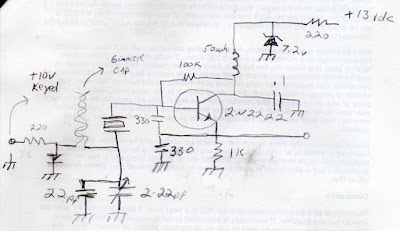 +10v
Keyed
Gimmick
Cap
50uh
220
+13 vdc
7.2v
100K
.1
2N2222
330
220
330
1K
22pf
2-22pf